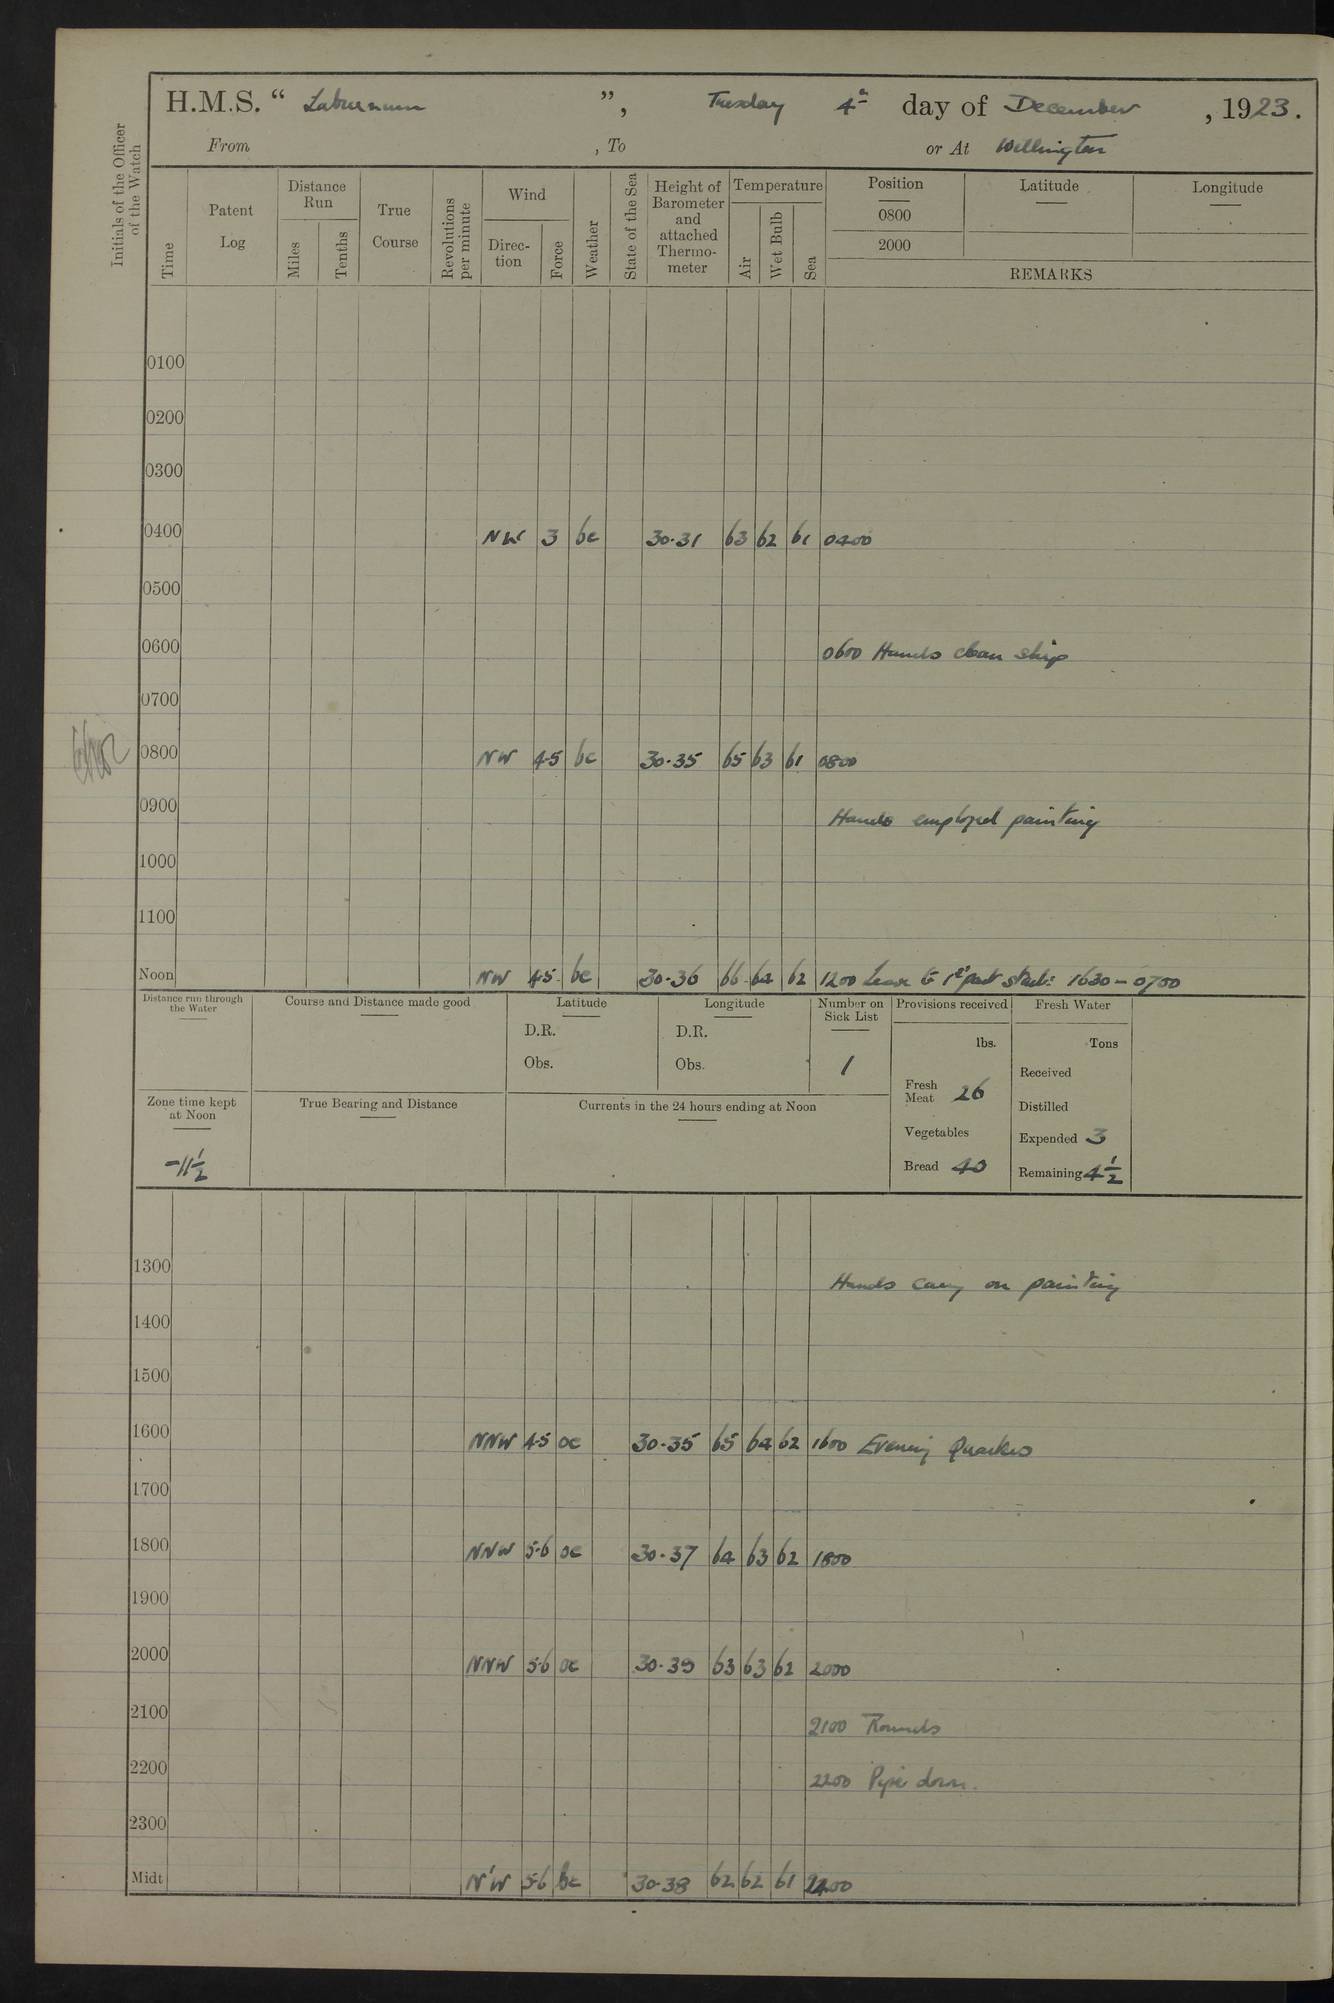 H.M.S. “ Laburnum ”, Tuesday 4th day of December , 1923.
From , To or At Wellington
Initials of the Officer of the Watch
Time
Patent Log
Distance Run
Miles
Tenths
True Course
Revolutions per minute
Wind
Direc-tion
Force
Weather
State of the Sea
Height of Barometer and attached Thermo-meter
Temperature
Air
Wet Bulb
Sea
Position
0800
2000
Latitude
Longitude
REMARKS
0100
0200
0300
0400 NW 3 bc 30.31 63 62 61 0400
0500
0600 0600 Hands clean ship
0700
0800 NW 4-5 bc 30.35 65 63 61 0800
0900 Hands employed painting
1000
1100
Noon NW 4-5 bc 30.36 66 64 62 1200 Leave to 1st part Starb: 1630 – 0700
Distance run through the Water
Course and Distance made good
Latitude
D.R.
Obs.
Longitude
D.R.
Obs.
Number on Sick List
1
Provisions received
lbs.
Fresh Meat 26
Vegetables
Bread 40
Fresh Water
Tons
Received
Distilled
Expended 3
Remaining 4½
Zone time kept at Noon
-11½
True Bearing and Distance
Currents in the 24 hours ending at Noon
1300 Hands carry on painting
1400
1500
1600 NNW 4-5 oc 30.35 65 64 62 1600 Evening Quarters
1700
1800 NNW 5-6 oc 30.37 64 63 62 1800
1900
2000 NNW 5-6 oc 30.39 63 63 62 2000
2100 2100 Rounds
2200 2200 Pipe down.
2300
Midt N'W 5-6 bc 30.38 62 62 61 2400